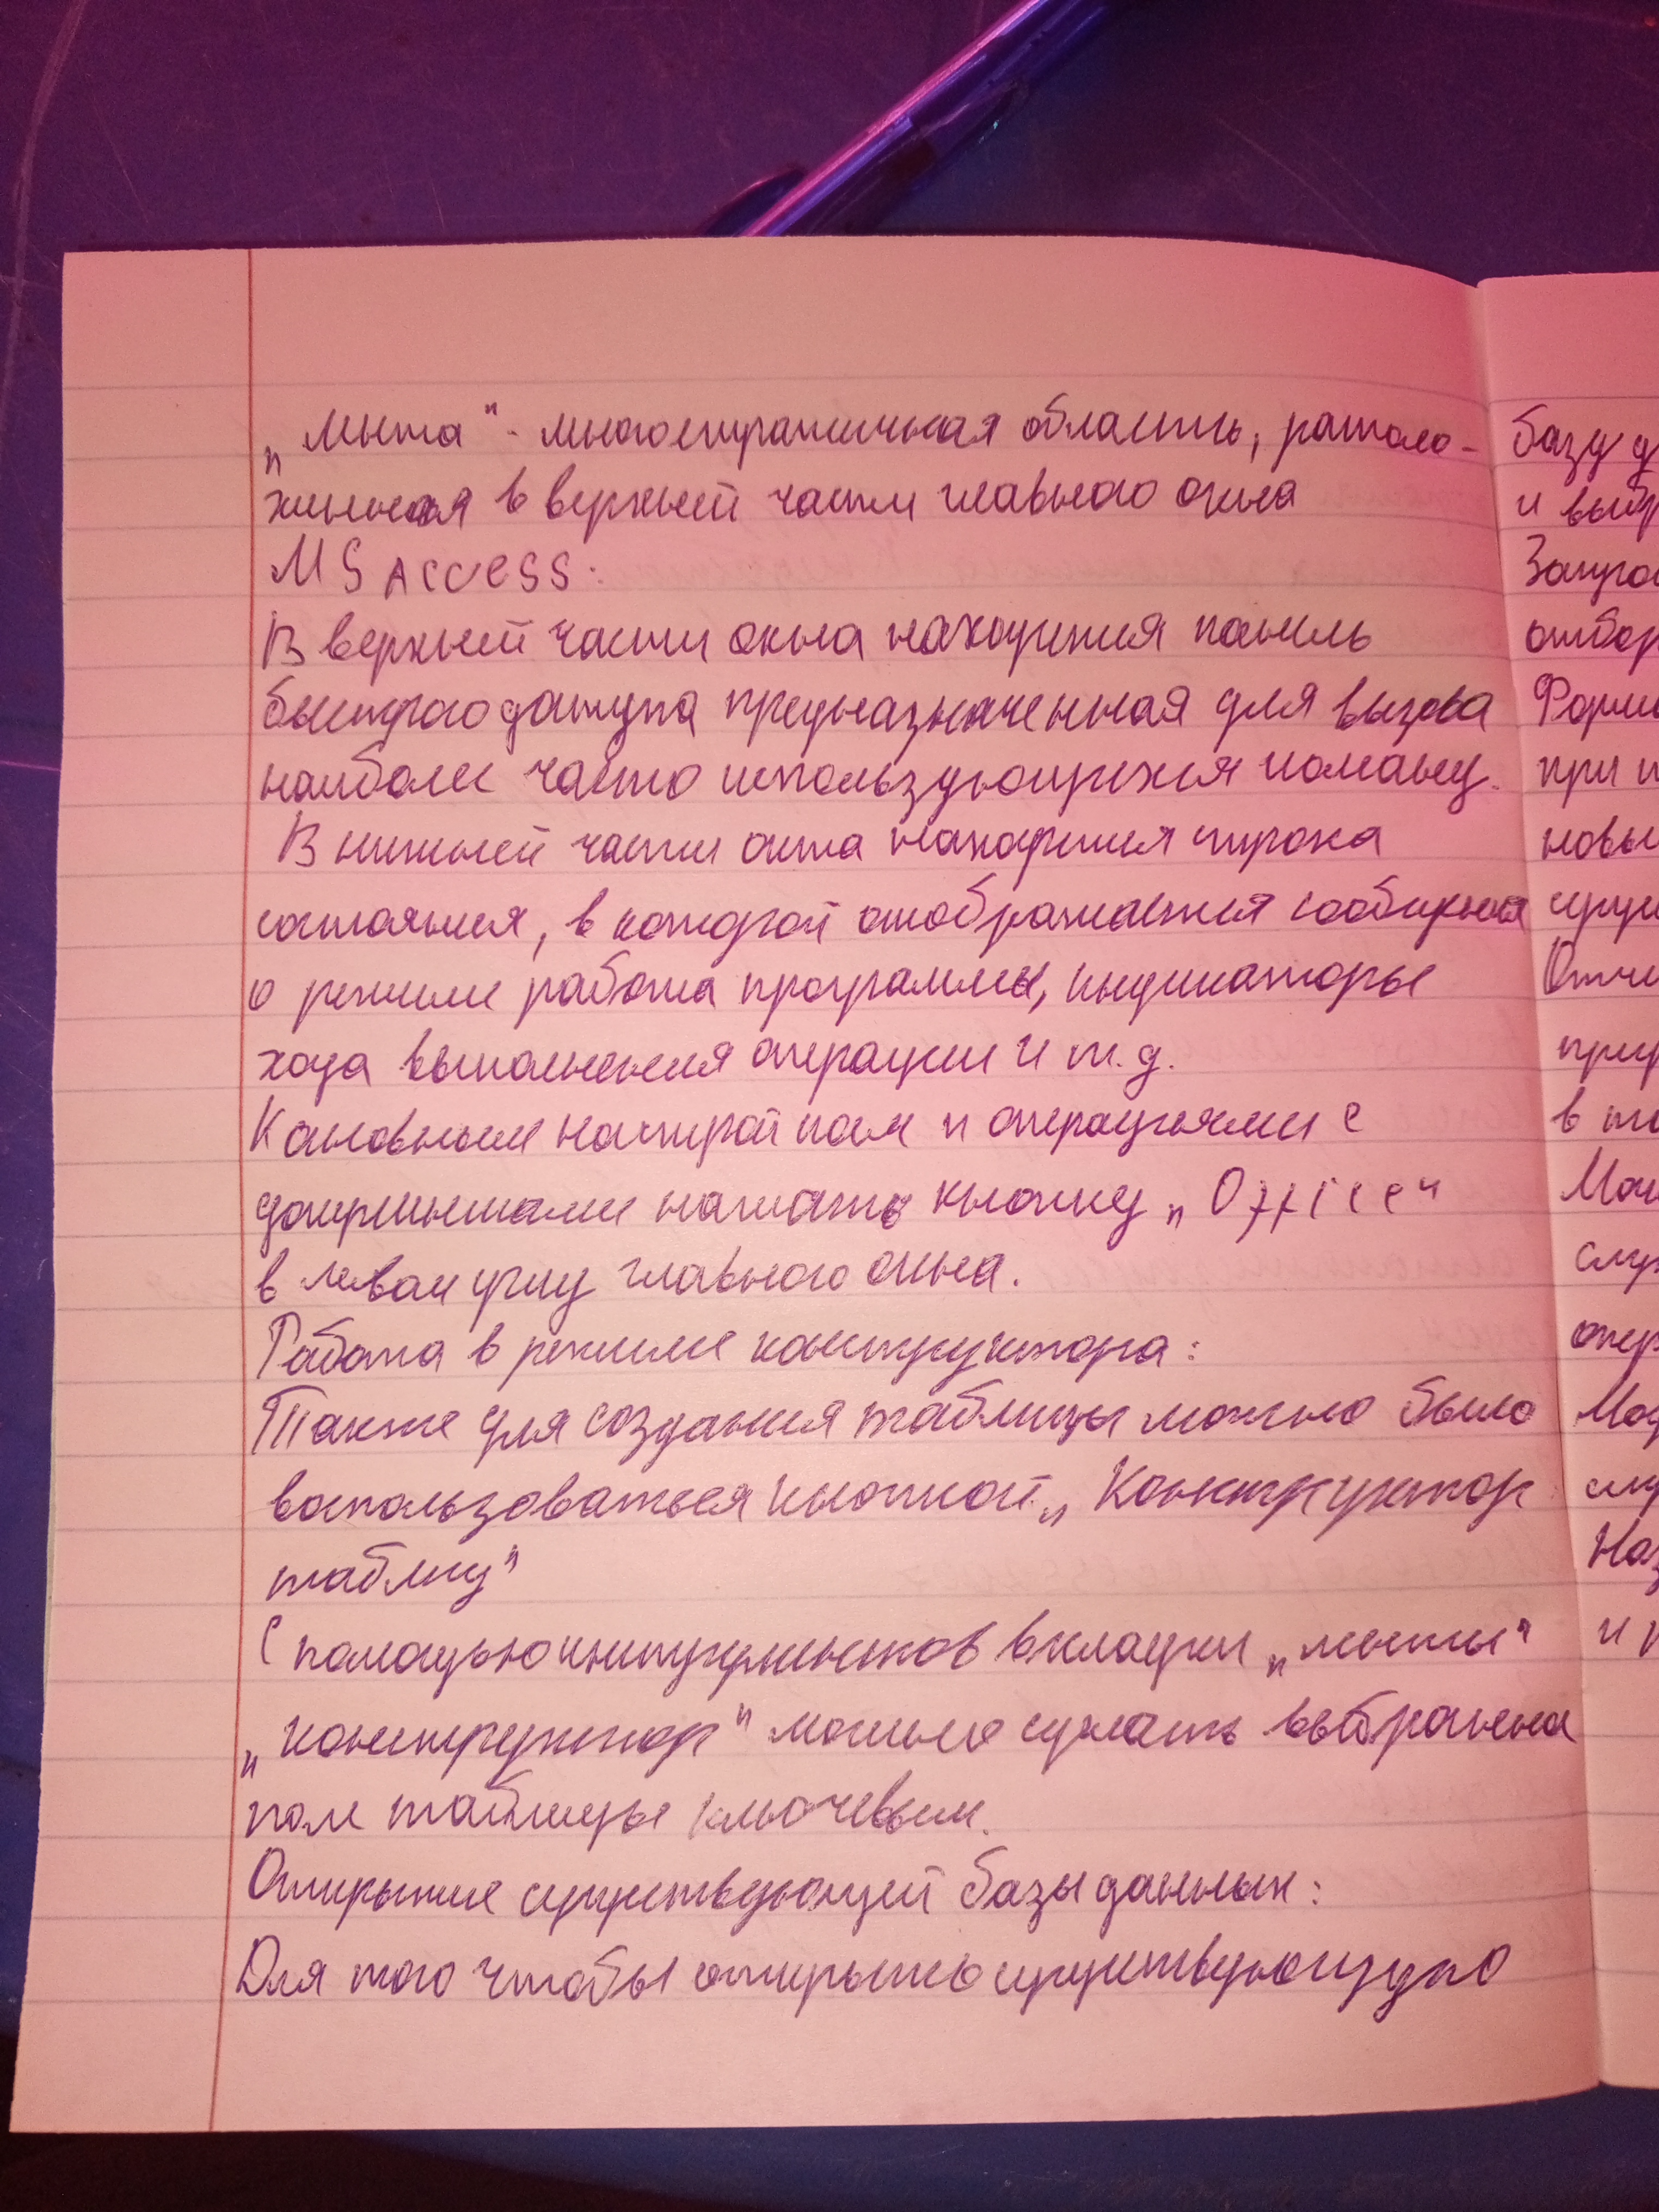 „Лента" - многостраничная область, располо-
женная в верхней части главного окна
MS ACCESS:
В верхней части окна находится панель
быстрого доступа предназначенная для вызова
наиболее часто использующихся команд.
В нижней части окна находится строка
состояния, в которой отображается сообщения
о режиме работа программы, индикаторы
хода выполнения операции и т.д.
К основным настройкам и операциями с
документами нажать кнопку „Office"
в левом углу главного окна.
Работа в режиме конструктора:
Также для создания таблицы можно было
воспользоваться кнопкой „Конструктор
таблиц"
С помощью инструментов вкладки „ленты"
„конструктор" можно сделать выбранена
поле таблицы ключевым.
Открытие существующей базы данных:
Для того чтобы открыть существующую
базу д
и выбр
Запро
отбор
при
новы
в